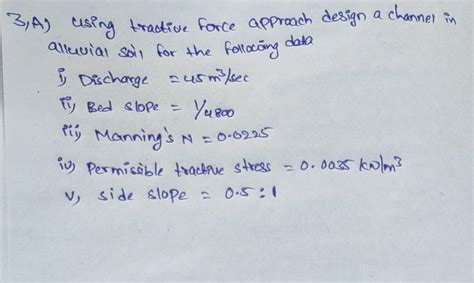 3,A) using tractive force approach design a channel in
alluvial soil for the following data
i, Discharge = 45 m³/sec
ii, Bed slope = 1/4800
iii, Manning's N = 0.0225
iv) Permissible tractive stress = 0.0035 kN/m³
v, side slope = 0.5:1